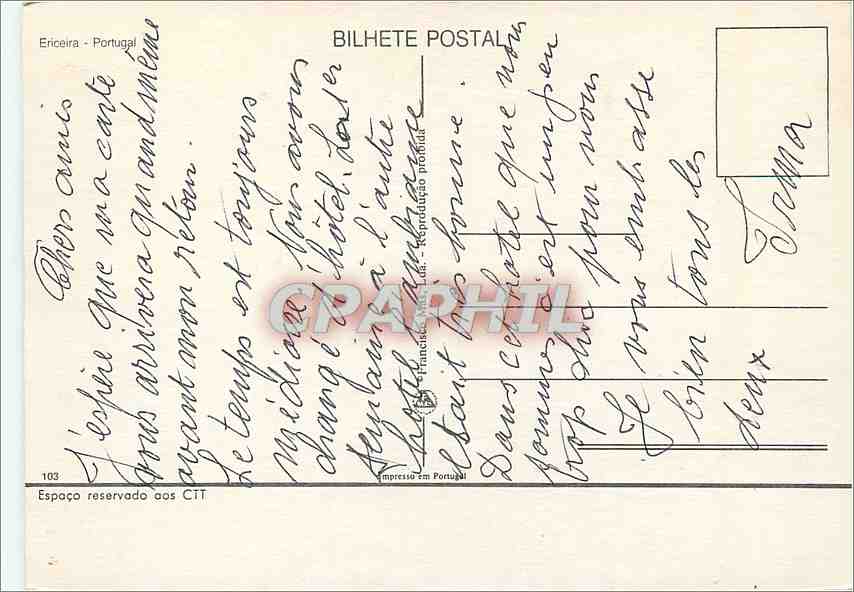 Ericeira - Portugal
BILHETE POSTAL
Chers amis
J'espère que ma carte
vous arrivera quand même
avant mon retour.
Le temps est toujours
médiocre. Nous avons
changé d'hôtel. Lors er
semaine à l'autre
hôtel l'ambiance
était très bonne.
Dans cet hôtel que nous
sommes c'est un peu
trop chic pour nous
Je vous embrasse
bien tous les
deux
Irma
Francisco Más, Lda. - Reprodução proibida
CPARHIL
103
Impresso em Portugal
Espaço reservado aos CTT